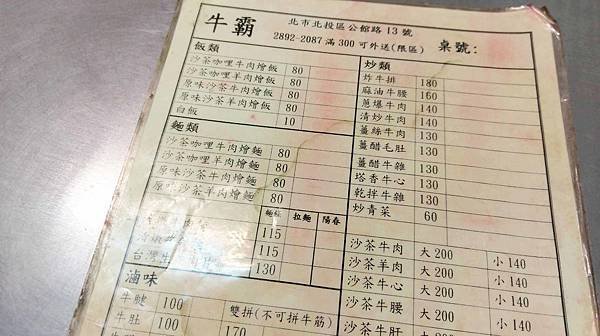 牛霸
北市北投區公館路13號
2892-2087滿300可外送(限區)
桌號:
飯類
沙茶咖哩牛肉燴飯 80
沙茶咖哩羊肉燴飯 80
原味沙茶牛肉燴飯 80
原味沙茶羊肉燴飯 80
白飯 10
麵類
沙茶咖哩牛肉燴麵 80
沙茶咖哩羊肉燴麵 80
原味沙茶牛肉燴麵 80
原味沙茶羊肉燴麵 80
拉麵 陽春
115
115
台灣生 130
滷味
牛腱 100
雙拼(不可拼牛筋)
牛肚 100
170
炒類
炸牛排 180
麻油牛腰 160
蔥爆牛肉 140
清炒牛肉 140
薑絲牛肉 130
薑醋毛肚 130
薑醋牛雜 130
塔香牛心 130
乾拌牛雜 130
炒青菜 60
沙茶牛肉 大200 小140
沙茶羊肉 大200 小140
沙茶牛心 大200 小140
沙茶牛腰 大200 小140
沙茶牛肝 大200 小140